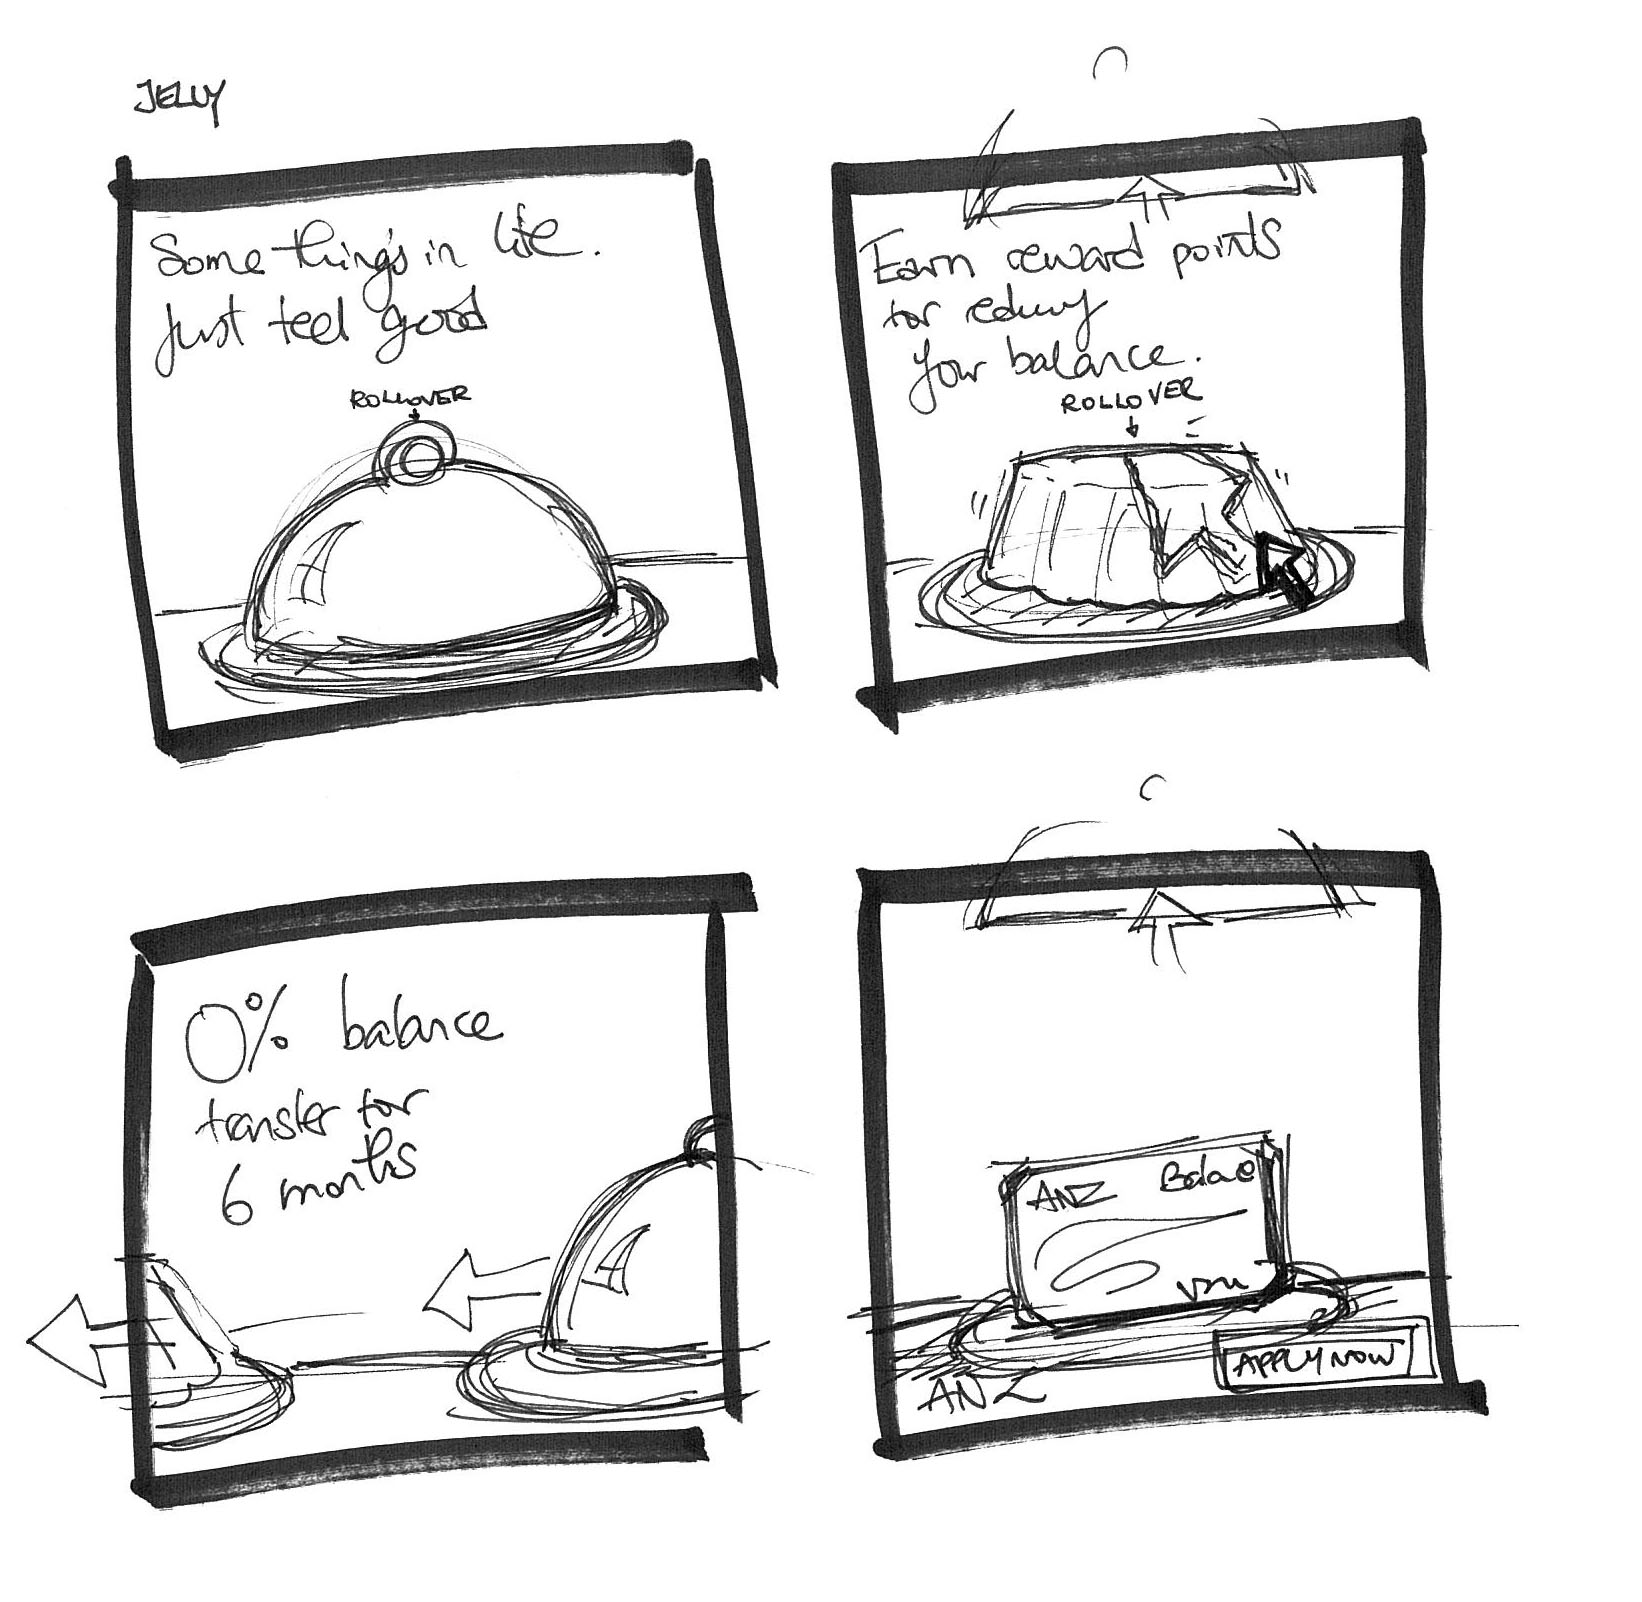 JELLY
Some things in life.
just feel good
ROLLOVER
Earn reward points
for reducing
your balance.
ROLLOVER
0% balance
transfer for
6 months
ANZ Balance
VISA
ANZ
APPLY NOW